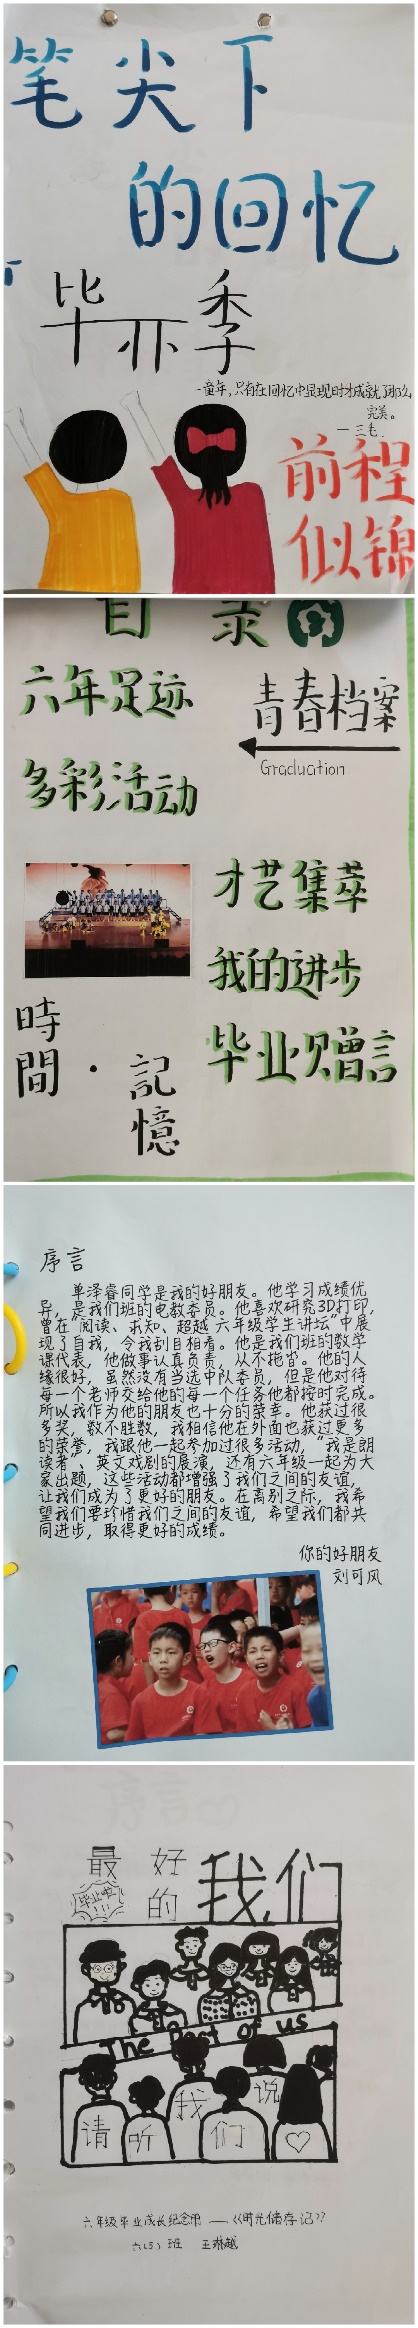 笔尖下
的回忆
毕业季
童年,只有在回忆中显现时才成就了那么
完美。
—三毛.
前程
似锦
目 录
六年足迹
青春档案
Graduation
多彩活动
才艺集萃
我的进步
毕业赠言
時間·記憶
序言
单泽睿同学是我的好朋友。他学习成绩优
异,是我们班的电教委员。他喜欢研究3D打印,
曾在“阅读、求知、超越 六年级学生讲坛”中展
现了自我,令我刮目相看。他是我们班的数学
课代表,他做事认真负责,从不拖沓。他的人
缘很好,虽然没有当选中队委员,但是他对待
每一个老师交给他的每一个任务他都按时完成。
所以我作为他的朋友也十分的荣幸。他获过很
多奖,数不胜数,我相信他在外面也获过更多
的荣誉,我跟他一起参加过很多活动,“我是朗
读者”、英文戏剧的展演,还有六年级一起为大
家出题,这些活动都增强了我们之间的友谊,
让我们成为了更好的朋友。在离别之际,我希
望我们要珍惜我们之间的友谊,希望我们都共
同进步,取得更好的成绩。
你的好朋友
刘可风
最好的我们
毕业啦!!!
The Best of us
请听我们说
六年级毕业成长纪念册 ——《时光储存记》
六(5)班 王琳越